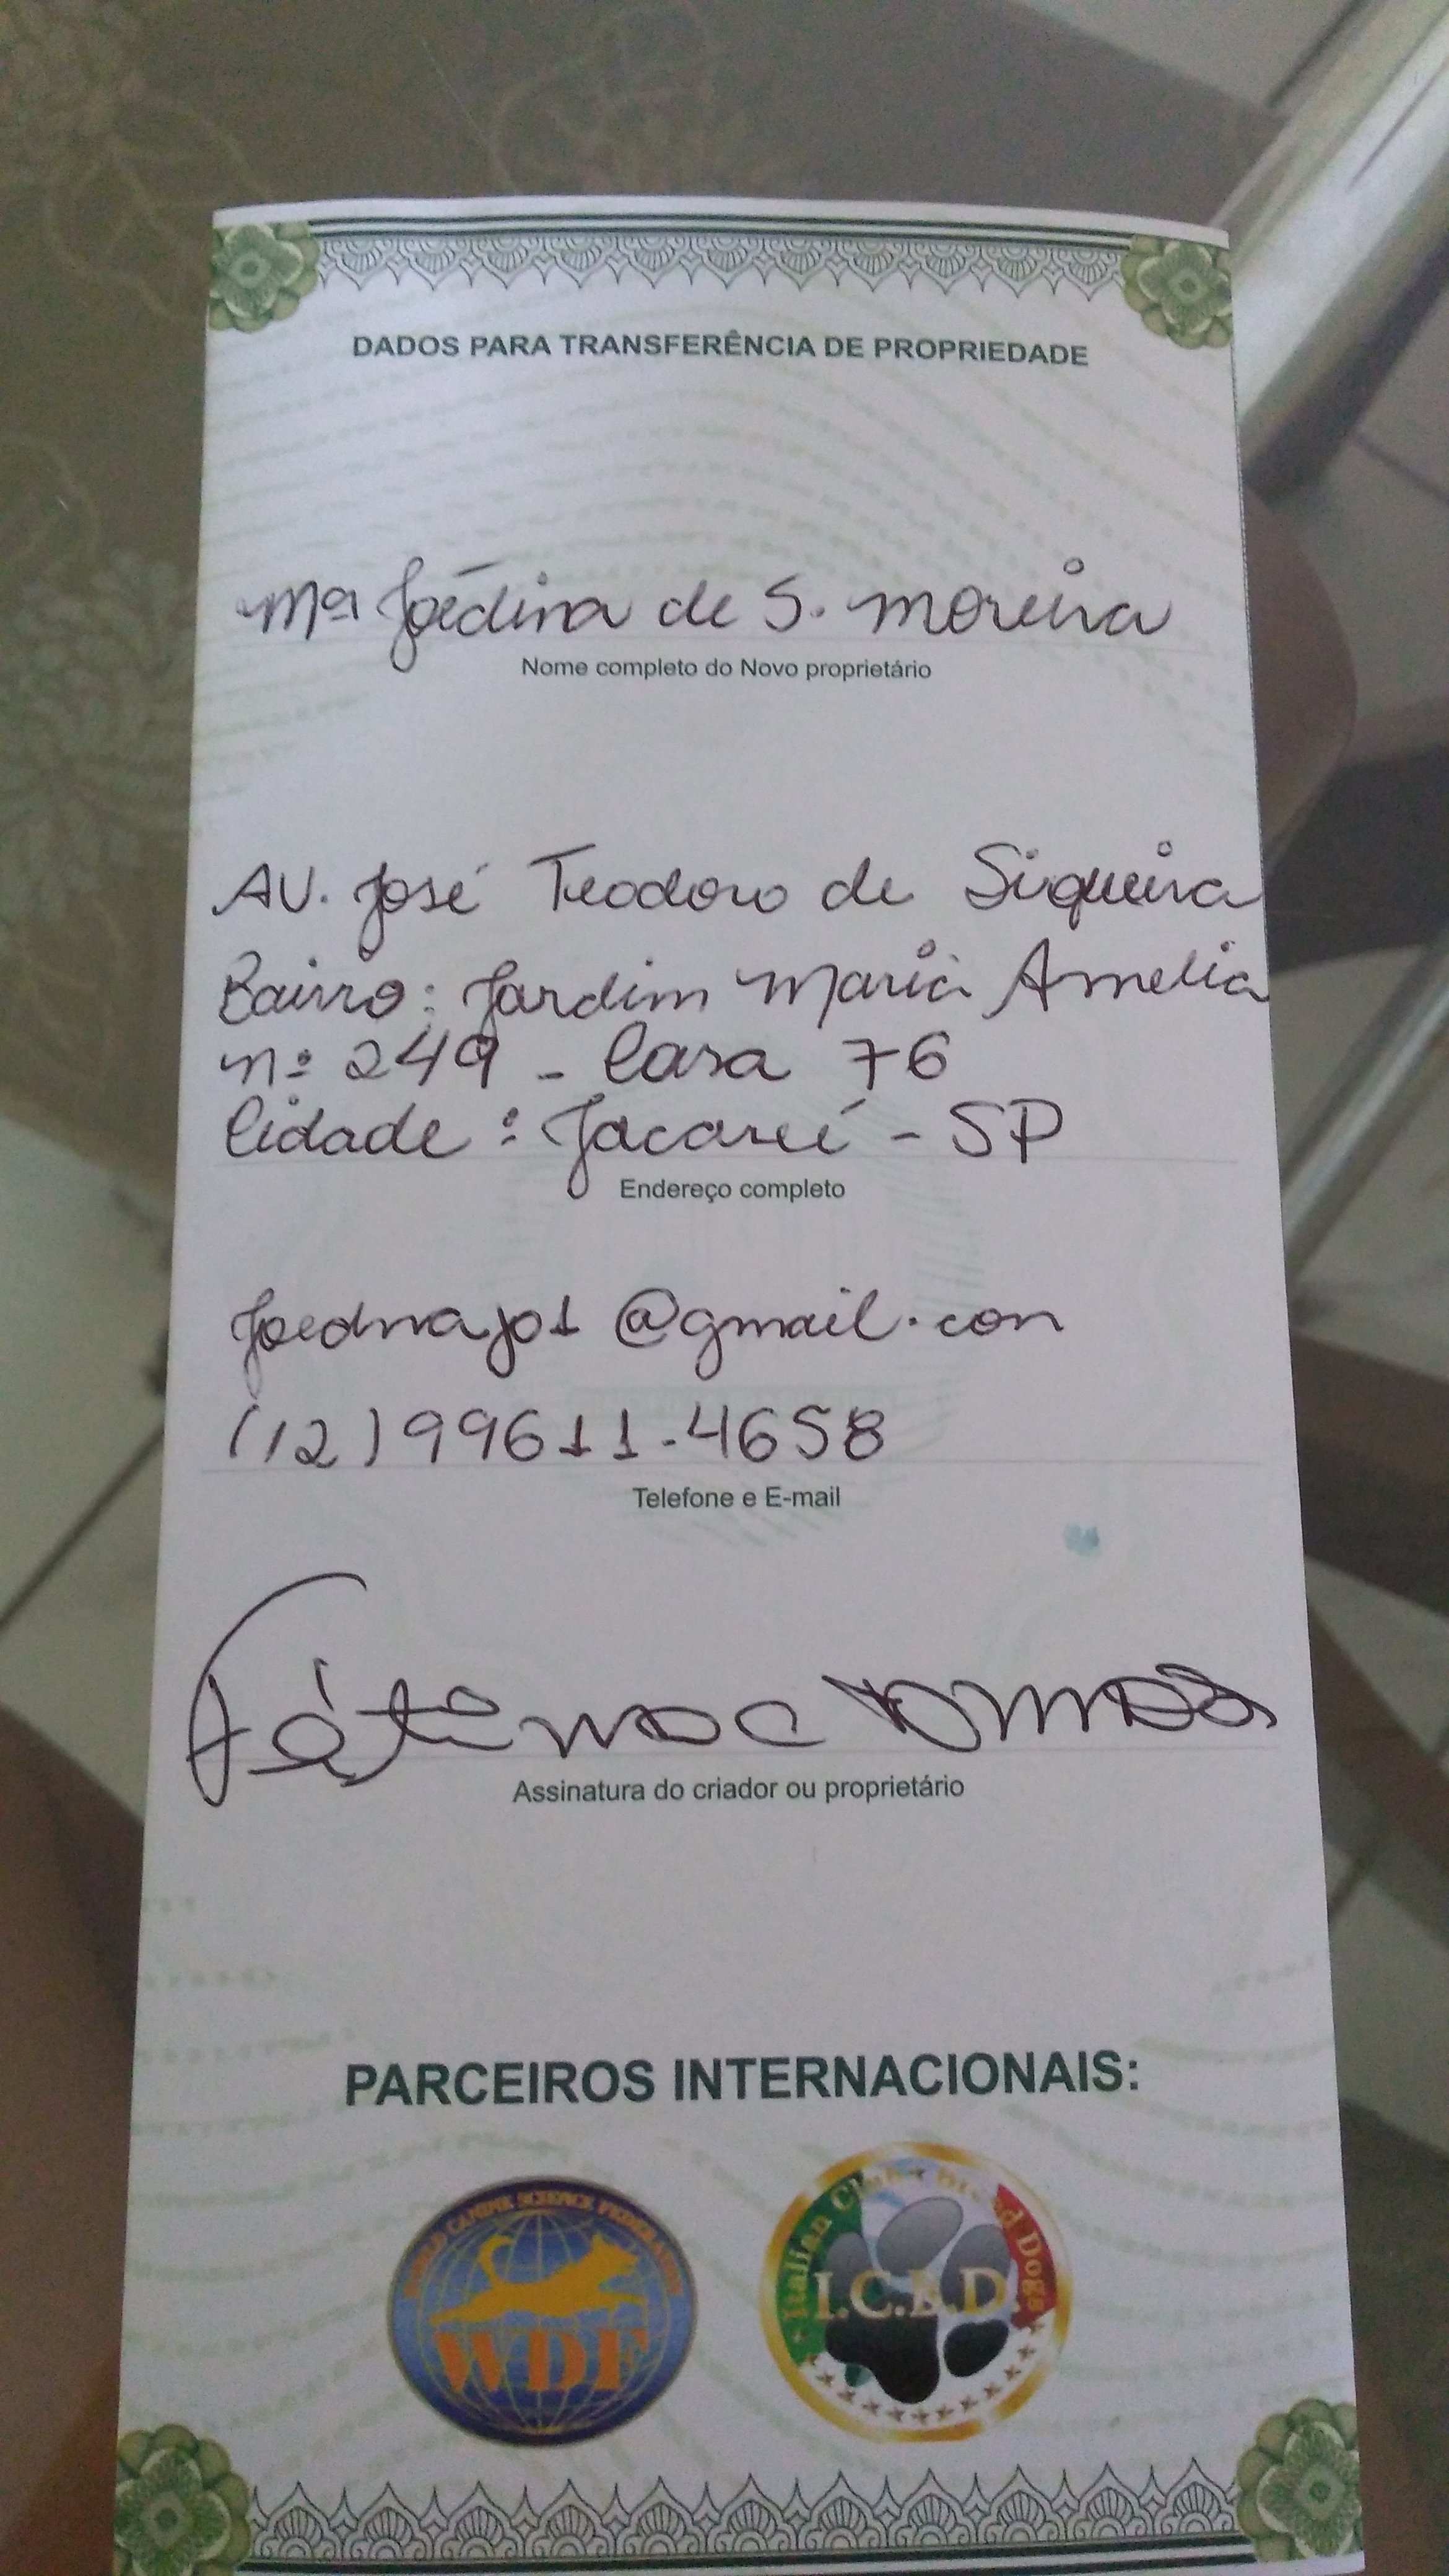 DADOS PARA TRANSFERÊNCIA DE PROPRIEDADE
Mª Joédina de S. Moreira
Nome completo do Novo proprietário
AV. José Teodoro de Siqueira
Bairro: Jardim Maria Amelia
nº 249 - Casa 76
Cidade: Jacareí - SP
Endereço completo
Joednajo1@gmail.con
(12) 99611-4658
Telefone e E-mail
Fátima
Assinatura do criador ou proprietário
PARCEIROS INTERNACIONAIS:
WORLD CANINE SCIENCE FEDERATION
WDF
Italian Club Breed Dogs
I.C.B.D.